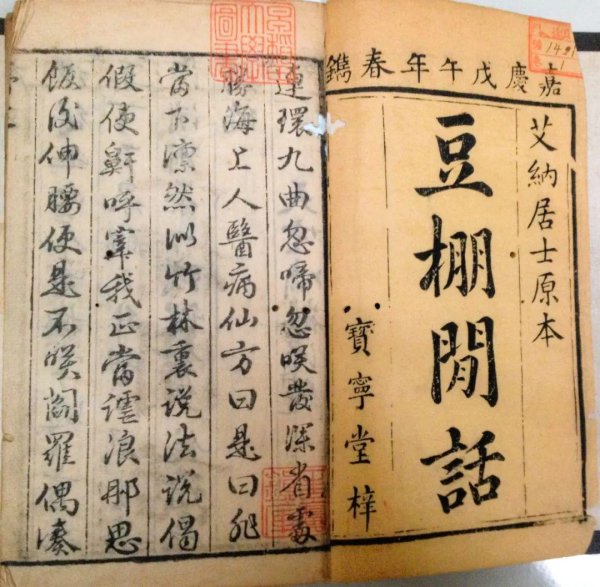 嘉慶戊午年春鐫
艾納居士原本
豆棚閒話
寶寧堂梓
連環九曲忽啼忽咲發深省處
勝海上人醫病仙方曰是曰非
當下凛然似竹林裏說法說偈
假使鼾呼宰我正當謔浪那思
飯後伸腰便是不咲閻羅偶湊